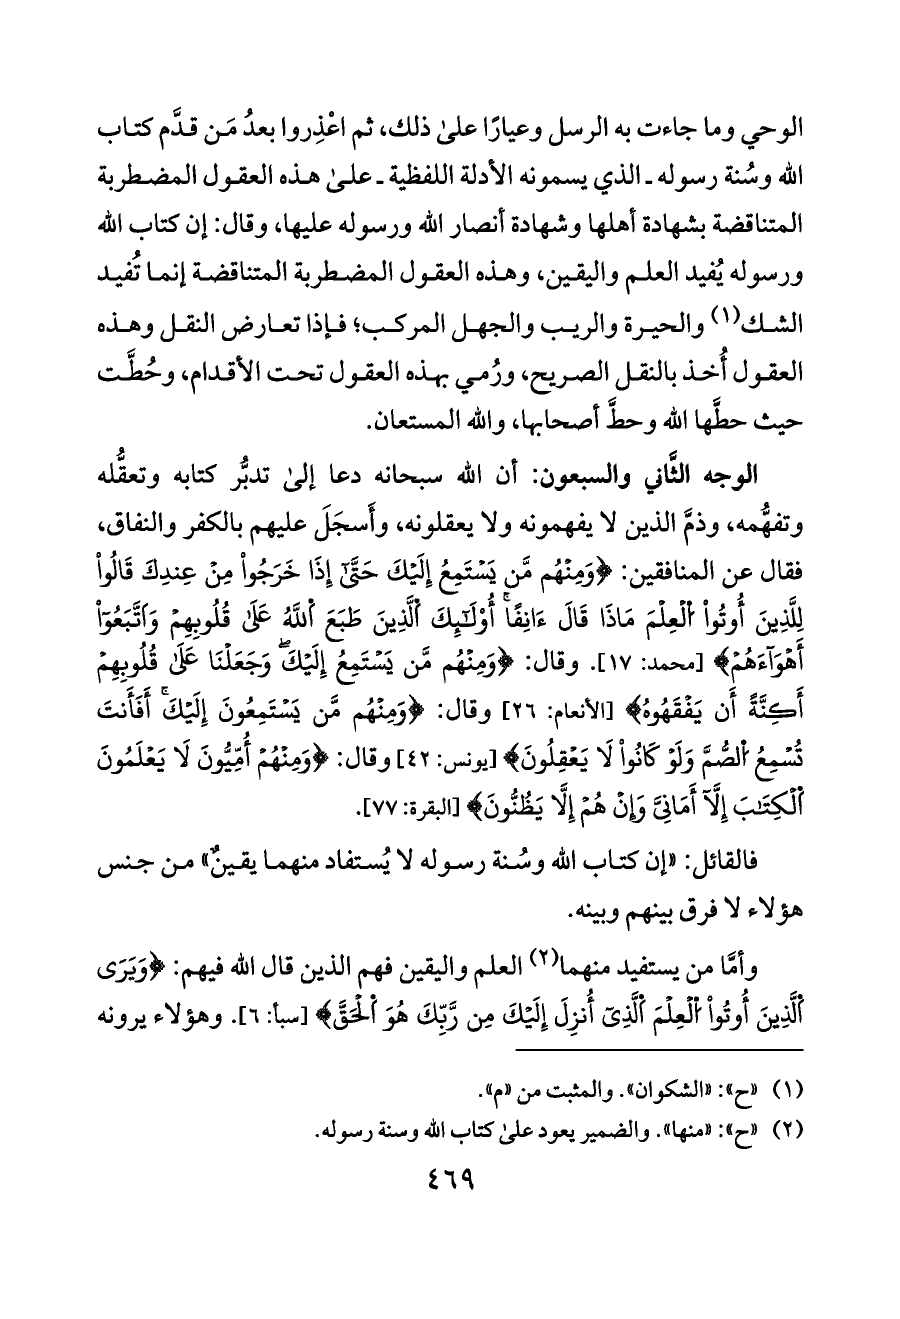 الوحي وما جاءت به الرسل وعيارًا علىٰ ذلك، ثم اعْذِروا بعدُ مَن قدَّم كتاب
الله وسُنة رسوله ـ الذي يسمونه الأدلة اللفظية ـ علىٰ هذه العقول المضطربة
المتناقضة بشهادة أهلها وشهادة أنصار الله ورسوله عليها، وقال: إن كتاب الله
ورسوله يُفيد العلم واليقين، وهذه العقول المضطربة المتناقضة إنما تُفيد
الشك(١) والحيرة والريب والجهل المركب؛ فإذا تعارض النقل وهذه
العقول أُخذ بالنقل الصريح، ورُمي بهذه العقول تحت الأقدام، وحُطَّت
حيث حطَّها الله وحطَّ أصحابها، والله المستعان.
الوجه الثَّاني والسبعون: أن الله سبحانه دعا إلىٰ تدبُّر كتابه وتعقُّله
وتفهُّمه، وذمَّ الذين لا يفهمونه ولا يعقلونه، وأَسجَلَ عليهم بالكفر والنفاق،
فقال عن المنافقين: ﴿وَمِنۡهُم مَّن يَسۡتَمِعُ إِلَيۡكَ حَتَّىٰٓ إِذَا خَرَجُواْ مِنۡ عِندِكَ قَالُواْ
لِلَّذِينَ أُوتُواْ ٱلۡعِلۡمَ مَاذَا قَالَ ءَانِفًاۚ أُوْلَٰٓئِكَ ٱلَّذِينَ طَبَعَ ٱللَّهُ عَلَىٰ قُلُوبِهِمۡ وَٱتَّبَعُوٓاْ
أَهۡوَآءَهُمۡ﴾ [محمد: ١٧]. وقال: ﴿وَمِنۡهُم مَّن يَسۡتَمِعُ إِلَيۡكَۖ وَجَعَلۡنَا عَلَىٰ قُلُوبِهِمۡ
أَكِنَّةً أَن يَفۡقَهُوهُ﴾ [الأنعام: ٢٦] وقال: ﴿وَمِنۡهُم مَّن يَسۡتَمِعُونَ إِلَيۡكَۚ أَفَأَنتَ
تُسۡمِعُ ٱلصُّمَّ وَلَوۡ كَانُواْ لَا يَعۡقِلُونَ﴾ [يونس: ٤٢] وقال: ﴿وَمِنۡهُمۡ أُمِّيُّونَ لَا يَعۡلَمُونَ
ٱلۡكِتَٰبَ إِلَّآ أَمَانِيَّ وَإِنۡ هُمۡ إِلَّا يَظُنُّونَ﴾ [البقرة: ٧٧].
فالقائل: «إن كتاب الله وسُنة رسوله لا يُستفاد منهما يقينٌ» من جنس
هؤلاء لا فرق بينهم وبينه.
وأمَّا من يستفيد منهما(٢) العلم واليقين فهم الذين قال الله فيهم: ﴿وَيَرَى
ٱلَّذِينَ أُوتُواْ ٱلۡعِلۡمَ ٱلَّذِيٓ أُنزِلَ إِلَيۡكَ مِن رَّبِّكَ هُوَ ٱلۡحَقَّ﴾ [سبأ: ٦]. وهؤلاء يرونه
(١) «ح»: «الشكوان». والمثبت من «م».
(٢) «ح»: «منها». والضمير يعود علىٰ كتاب الله وسنة رسوله.
٤٦٩